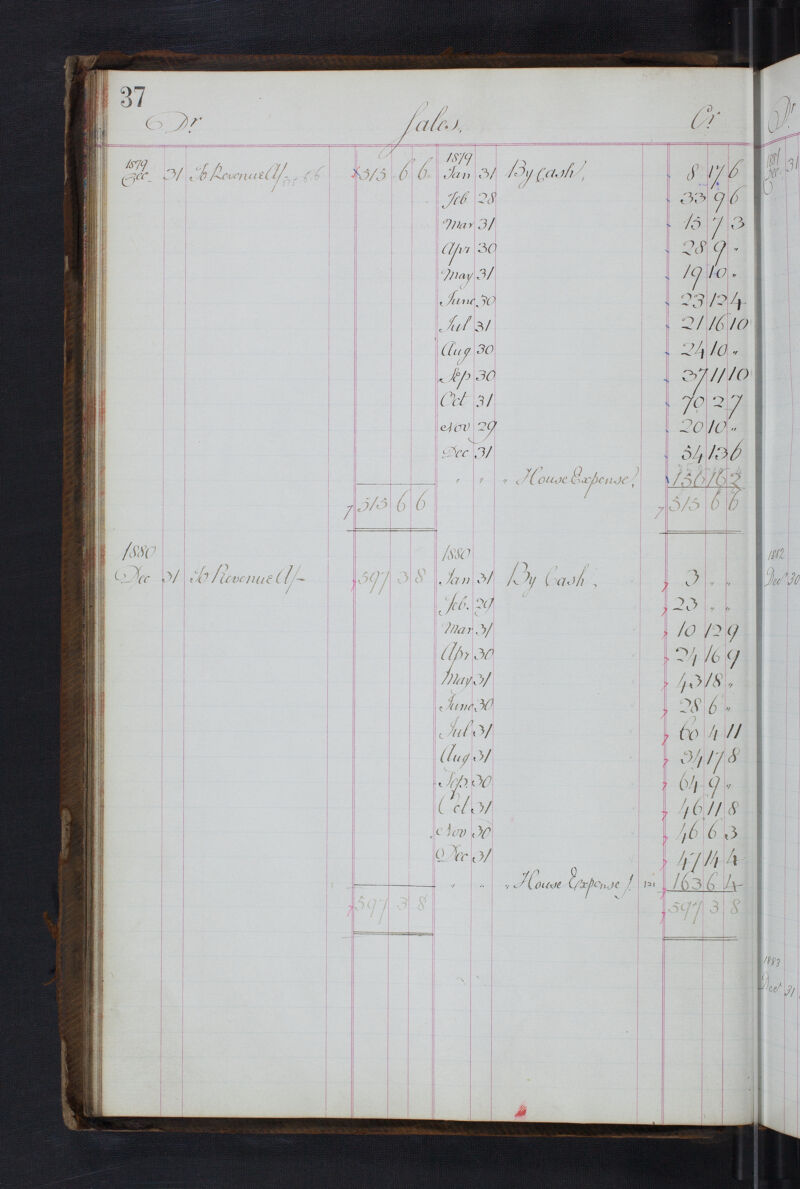 37
Dr Sales. Cr
1879 1879
Dec 31 To Revenue A/- 515 6 6 Jan 31 By Cash. 8 17 6
Feb 28 33 9 6
Mar 31 15 7 3
Apr 30 28 9 "
May 31 19 10 "
June 30 23 12 4
Jul 31 21 16 10
Aug 30 24 10 "
Sep 30 37 11 10
Oct 31 70 2 7
Nov 29 20 10 "
Dec 31 54 13 6
" " " House Expense, 156 16 2
515 6 6 515 6 6
1880 1880
Dec 31 To Revenue A/- 597 3 8 Jan 31 By Cash. 3 " "
Feb. 29 23 " "
Mar 31 10 12 9
Apr 30 24 16 9
May 31 43 18 "
June 30 28 6 "
Jul 31 60 4 11
Aug 31 34 17 8
Sep. 30 64 9 "
Oct 31 46 11 8
Nov 30 46 6 3
Dec 31 47 14 4
" " " House Expense /. 121 163 6 4
597 3 8 597 3 8
Dr
1881
Dec 31
1882
Dec 30
1883
Dec 31